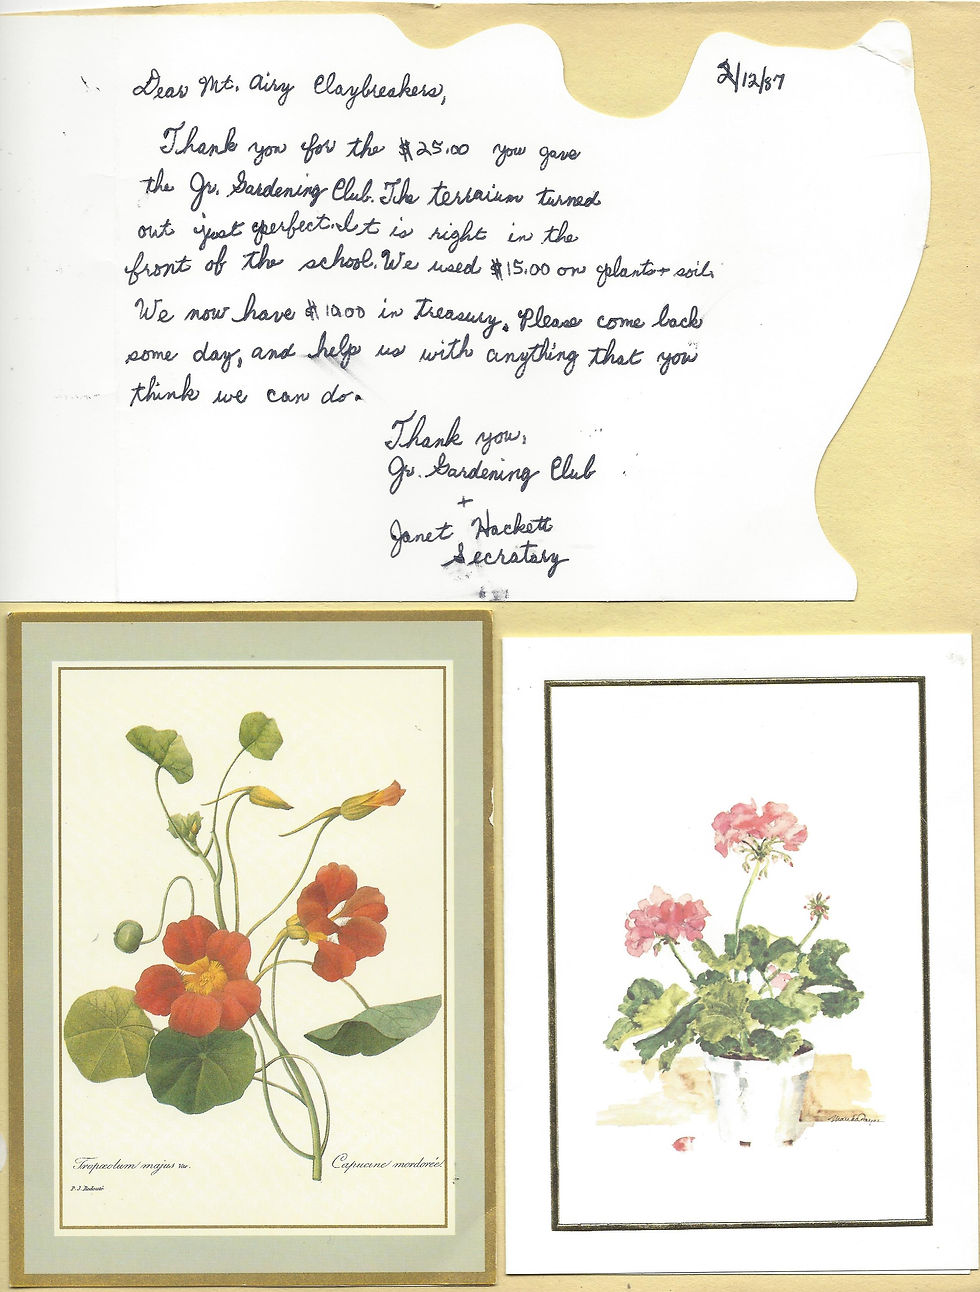 2/12/87
Dear Mt. Airy Claybreakers,
Thank you for the $25.00 you gave
the Jr. Gardening Club. The terraium turned
out just perfect. It is right in the
front of the school. We used $15.00 on plants + soil.
We now have $10.00 in treasury. Please come back
some day, and help us with anything that you
think we can do.
Thank you,
Jr. Gardening Club
+
Janet Hackett
Secratary
Tropæolum majus var.
Capucine mordorée
P. J. Redouté